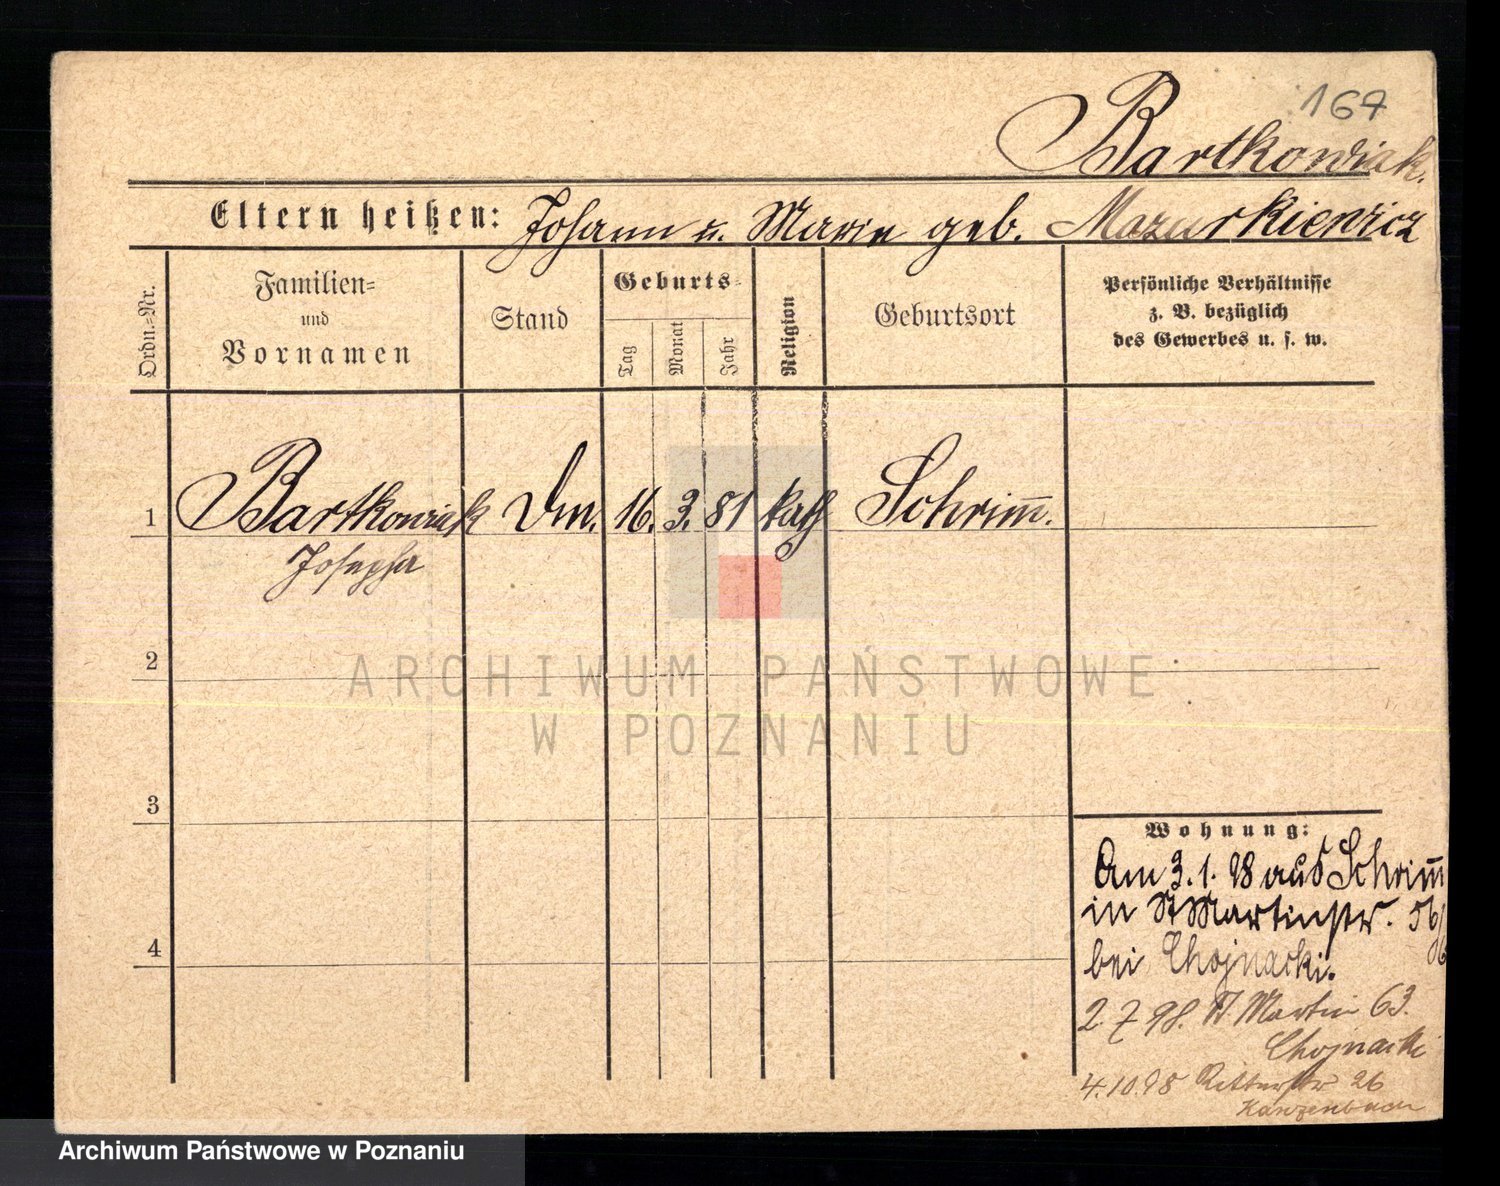 167
Bartkowiak.
Eltern heißen: Johann u. Marie geb. Mazurkiewicz
Ordn.-Nr.
Familien=
und
Vornamen
Stand
Geburts=
Tag
Monat
Jahr
Religion
Geburtsort
Persönliche Verhältnisse
z. B. bezüglich
des Gewerbes u. s. w.
1 Bartkowiak Dm. 16. 3. 81 kath Schrim̅.
Josepha
2
ARCHIWUM PAŃSTWOWE
W POZNANIU
3
Wohnung:
Am 3.1.98 aus Schrim̅
in St Martinstr. 56/
bei Chojnacki.
4
2.7.98. St Martin 63.
Chojnacki
4.10.98 Ritterstr 26
Kanzenbach
Archiwum Państwowe w Poznaniu